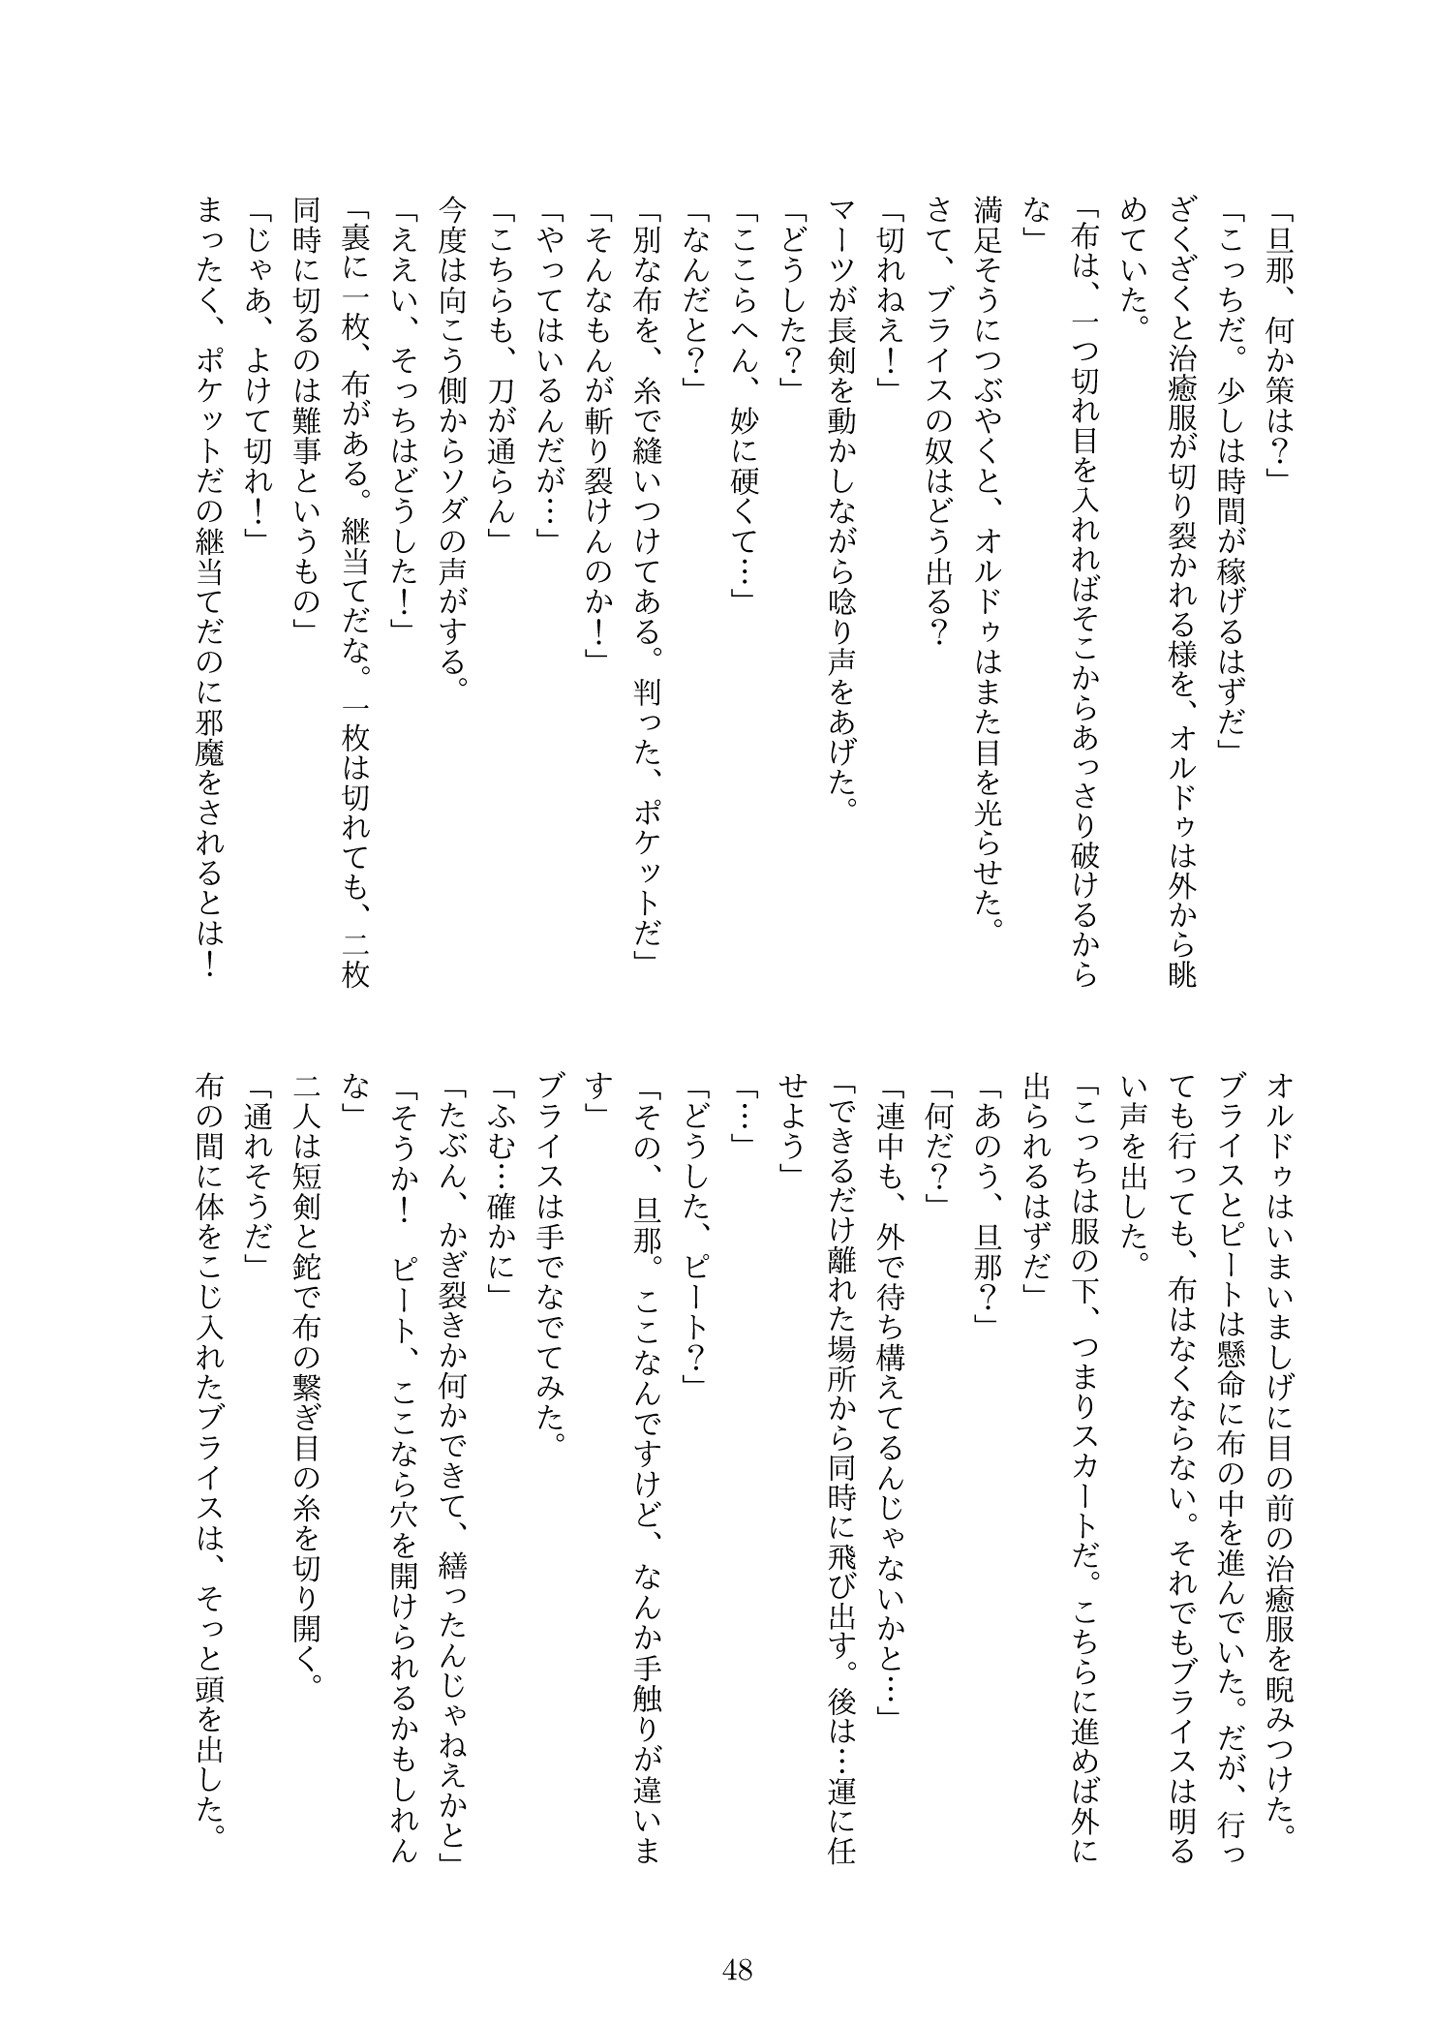 「旦那、何か策は？」
「こっちだ。少しは時間が稼げるはずだ」
ざくざくと治癒服が切り裂かれる様を、オルドゥは外から眺
めていた。
「布は、一つ切れ目を入れればそこからあっさり破けるから
な」
満足そうにつぶやくと、オルドゥはまた目を光らせた。
さて、ブライスの奴はどう出る？
「切れねえ！」
マーツが長剣を動かしながら唸り声をあげた。
「どうした？」
「ここらへん、妙に硬くて…」
「なんだと？」
「別な布を、糸で縫いつけてある。判った、ポケットだ」
「そんなもんが斬り裂けんのか！」
「やってはいるんだが…」
「こちらも、刀が通らん」
今度は向こう側からソダの声がする。
「ええい、そっちはどうした！」
「裏に一枚、布がある。継当てだな。一枚は切れても、二枚
同時に切るのは難事というもの」
「じゃあ、よけて切れ！」
まったく、ポケットだの継当てだのに邪魔をされるとは！
オルドゥはいまいましげに目の前の治癒服を睨みつけた。
ブライスとピートは懸命に布の中を進んでいた。だが、行っ
ても行っても、布はなくならない。それでもブライスは明る
い声を出した。
「こっちは服の下、つまりスカートだ。こちらに進めば外に
出られるはずだ」
「あのう、旦那？」
「何だ？」
「連中も、外で待ち構えてるんじゃないかと…」
「できるだけ離れた場所から同時に飛び出す。後は…運に任
せよう」
「…」
「どうした、ピート？」
「その、旦那。ここなんですけど、なんか手触りが違いま
す」
ブライスは手でなでてみた。
「ふむ…確かに」
「たぶん、かぎ裂きか何かできて、繕ったんじゃねえかと」
「そうか！　ピート、ここなら穴を開けられるかもしれん
な」
二人は短剣と鉈で布の繋ぎ目の糸を切り開く。
「通れそうだ」
布の間に体をこじ入れたブライスは、そっと頭を出した。
48